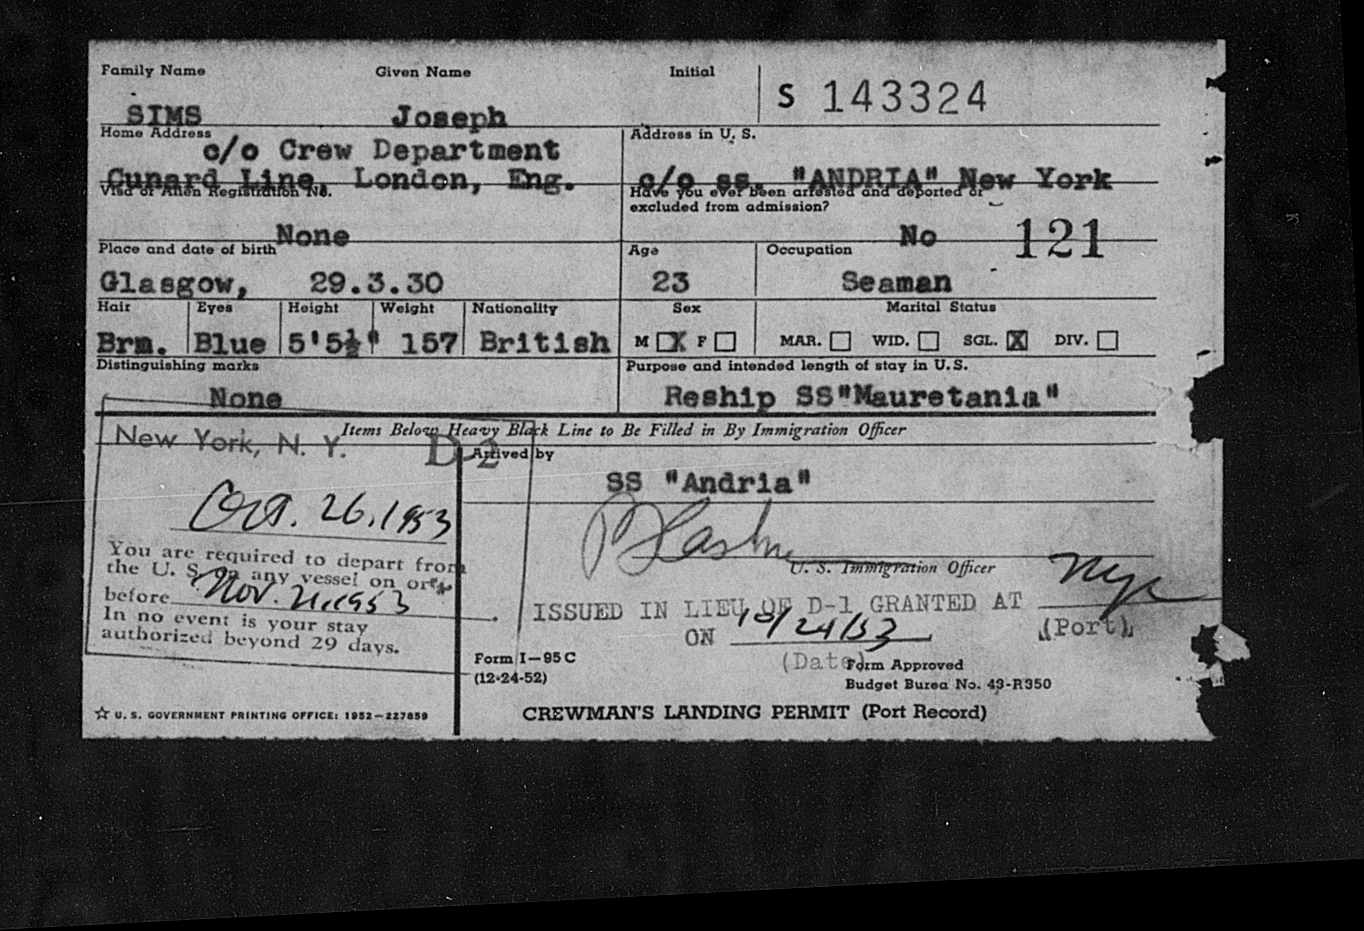 Family Name Given Name Initial
S 143324
SIMS Joseph
Home Address
c/o Crew Department
Cunard Line, London, Eng.
Address in U. S.
c/o ss. "ANDRIA" New York
Visa or Alien Registration No.
None
Have you ever been arrested and deported or
excluded from admission?
No 121
Place and date of birth
Glasgow, 29.3.30
Age
23
Occupation
Seaman
Hair Eyes Height Weight Nationality
Brn. Blue 5'5½" 157 British
Sex
M X F
Marital Status
MAR. WID. SGL. X DIV.
Distinguishing marks
None
Purpose and intended length of stay in U.S.
Reship SS"Mauretania"
Items Below Heavy Black Line to Be Filled in By Immigration Officer
New York, N. Y. D-2
Oct. 26, 1953
You are required to depart from
the U. S. on any vessel on or
before Nov. 21, 1953.
In no event is your stay
authorized beyond 29 days.
Arrived by
SS "Andria"
U. S. Immigration Officer
ISSUED IN LIEU OF D-1 GRANTED AT nyc
(Port)
ON 10/24/53
(Date)
Form I-95C
(12-24-52)
Form Approved
Budget Burea No. 43-R350
☆ U. S. GOVERNMENT PRINTING OFFICE: 1952-227859
CREWMAN'S LANDING PERMIT (Port Record)